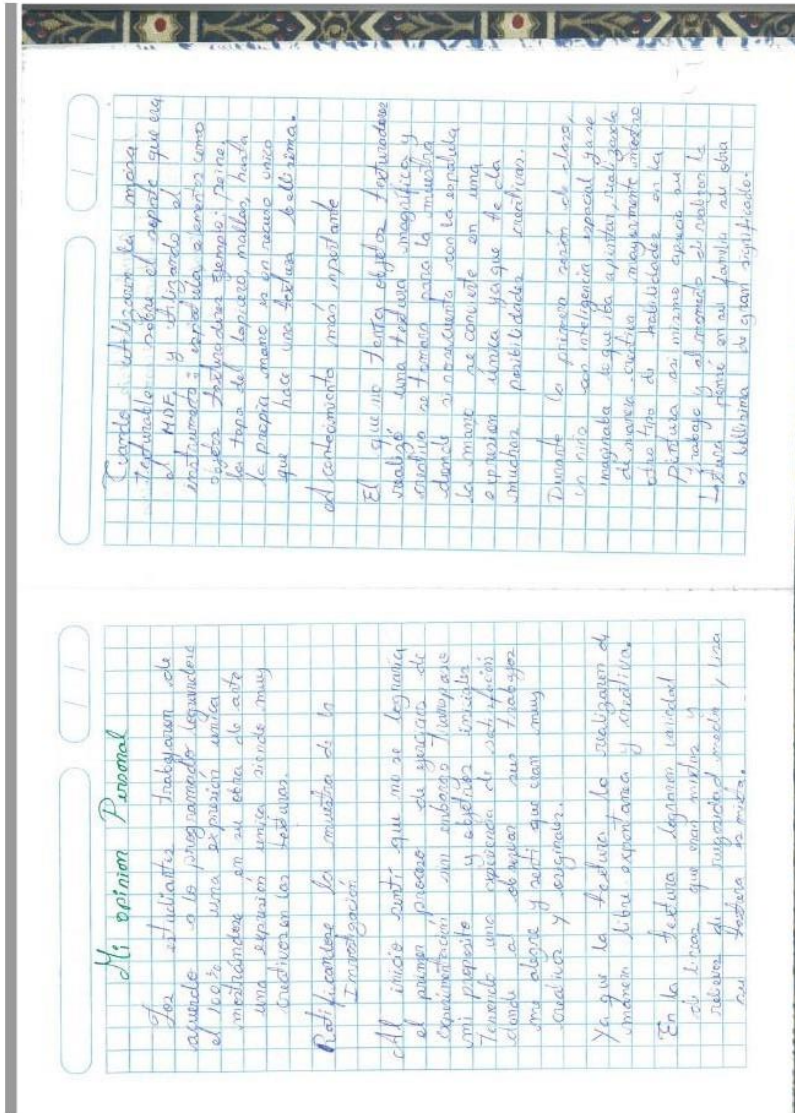 Mi opinion Personal
Los estudiantes trabajaron de
acuerdo a lo programado lograndose
el 100% una expresión unica
mostrándose en su obra de arte
una expresión unica siendo muy
creativos en las texturas.
Ratificandose la muestra de la
Investigación
Al inicio sentí que no se lograría
el primer proceso de ejercicio de
experimentación sin embargo
mi proposito y objetivos iniciales
Teniendo una experiencia de satisfacción
donde al observar sus trabajos
me alegre y senti que eran muy
creativos y originales.
Ya que la textura lo realizaron de
manera libre expontanea y creativa.
En la textura lograron calidad
de lisas que eran mixtas y
relieves de rugosidad media, lisa
su textura es mixta.
Cuando utilizaron la
texturable sobre el soporte que era
el MDF, y utilizando el
instrumento: espátula, elementos como
objetos texturadores ejemplo: peine,
la tapa del lapicero, mallas, hasta
la propia mano es un recurso unico
que hace una textura bellísima.
el conocimiento más importante
El que no tenía objetos texturadores
realizó una textura magnífica y
creativa se tomará para la muestra
donde se encuentra con la espátula
la mano se convierte en una
expresión única ya que te da
muchas posibilidades creativas.
Durante la primera sesión de clase,
un niño con inteligencia espacial ya se
imaginaba lo que iba a pintar realizando
de manera creativa mayormente muestra
otro tipo de habilidades en la
Pintura asi mismo aprecio su
trabajo y al momento de realizar la
textura pensó en su familia su obra
es bellísima de gran significado.